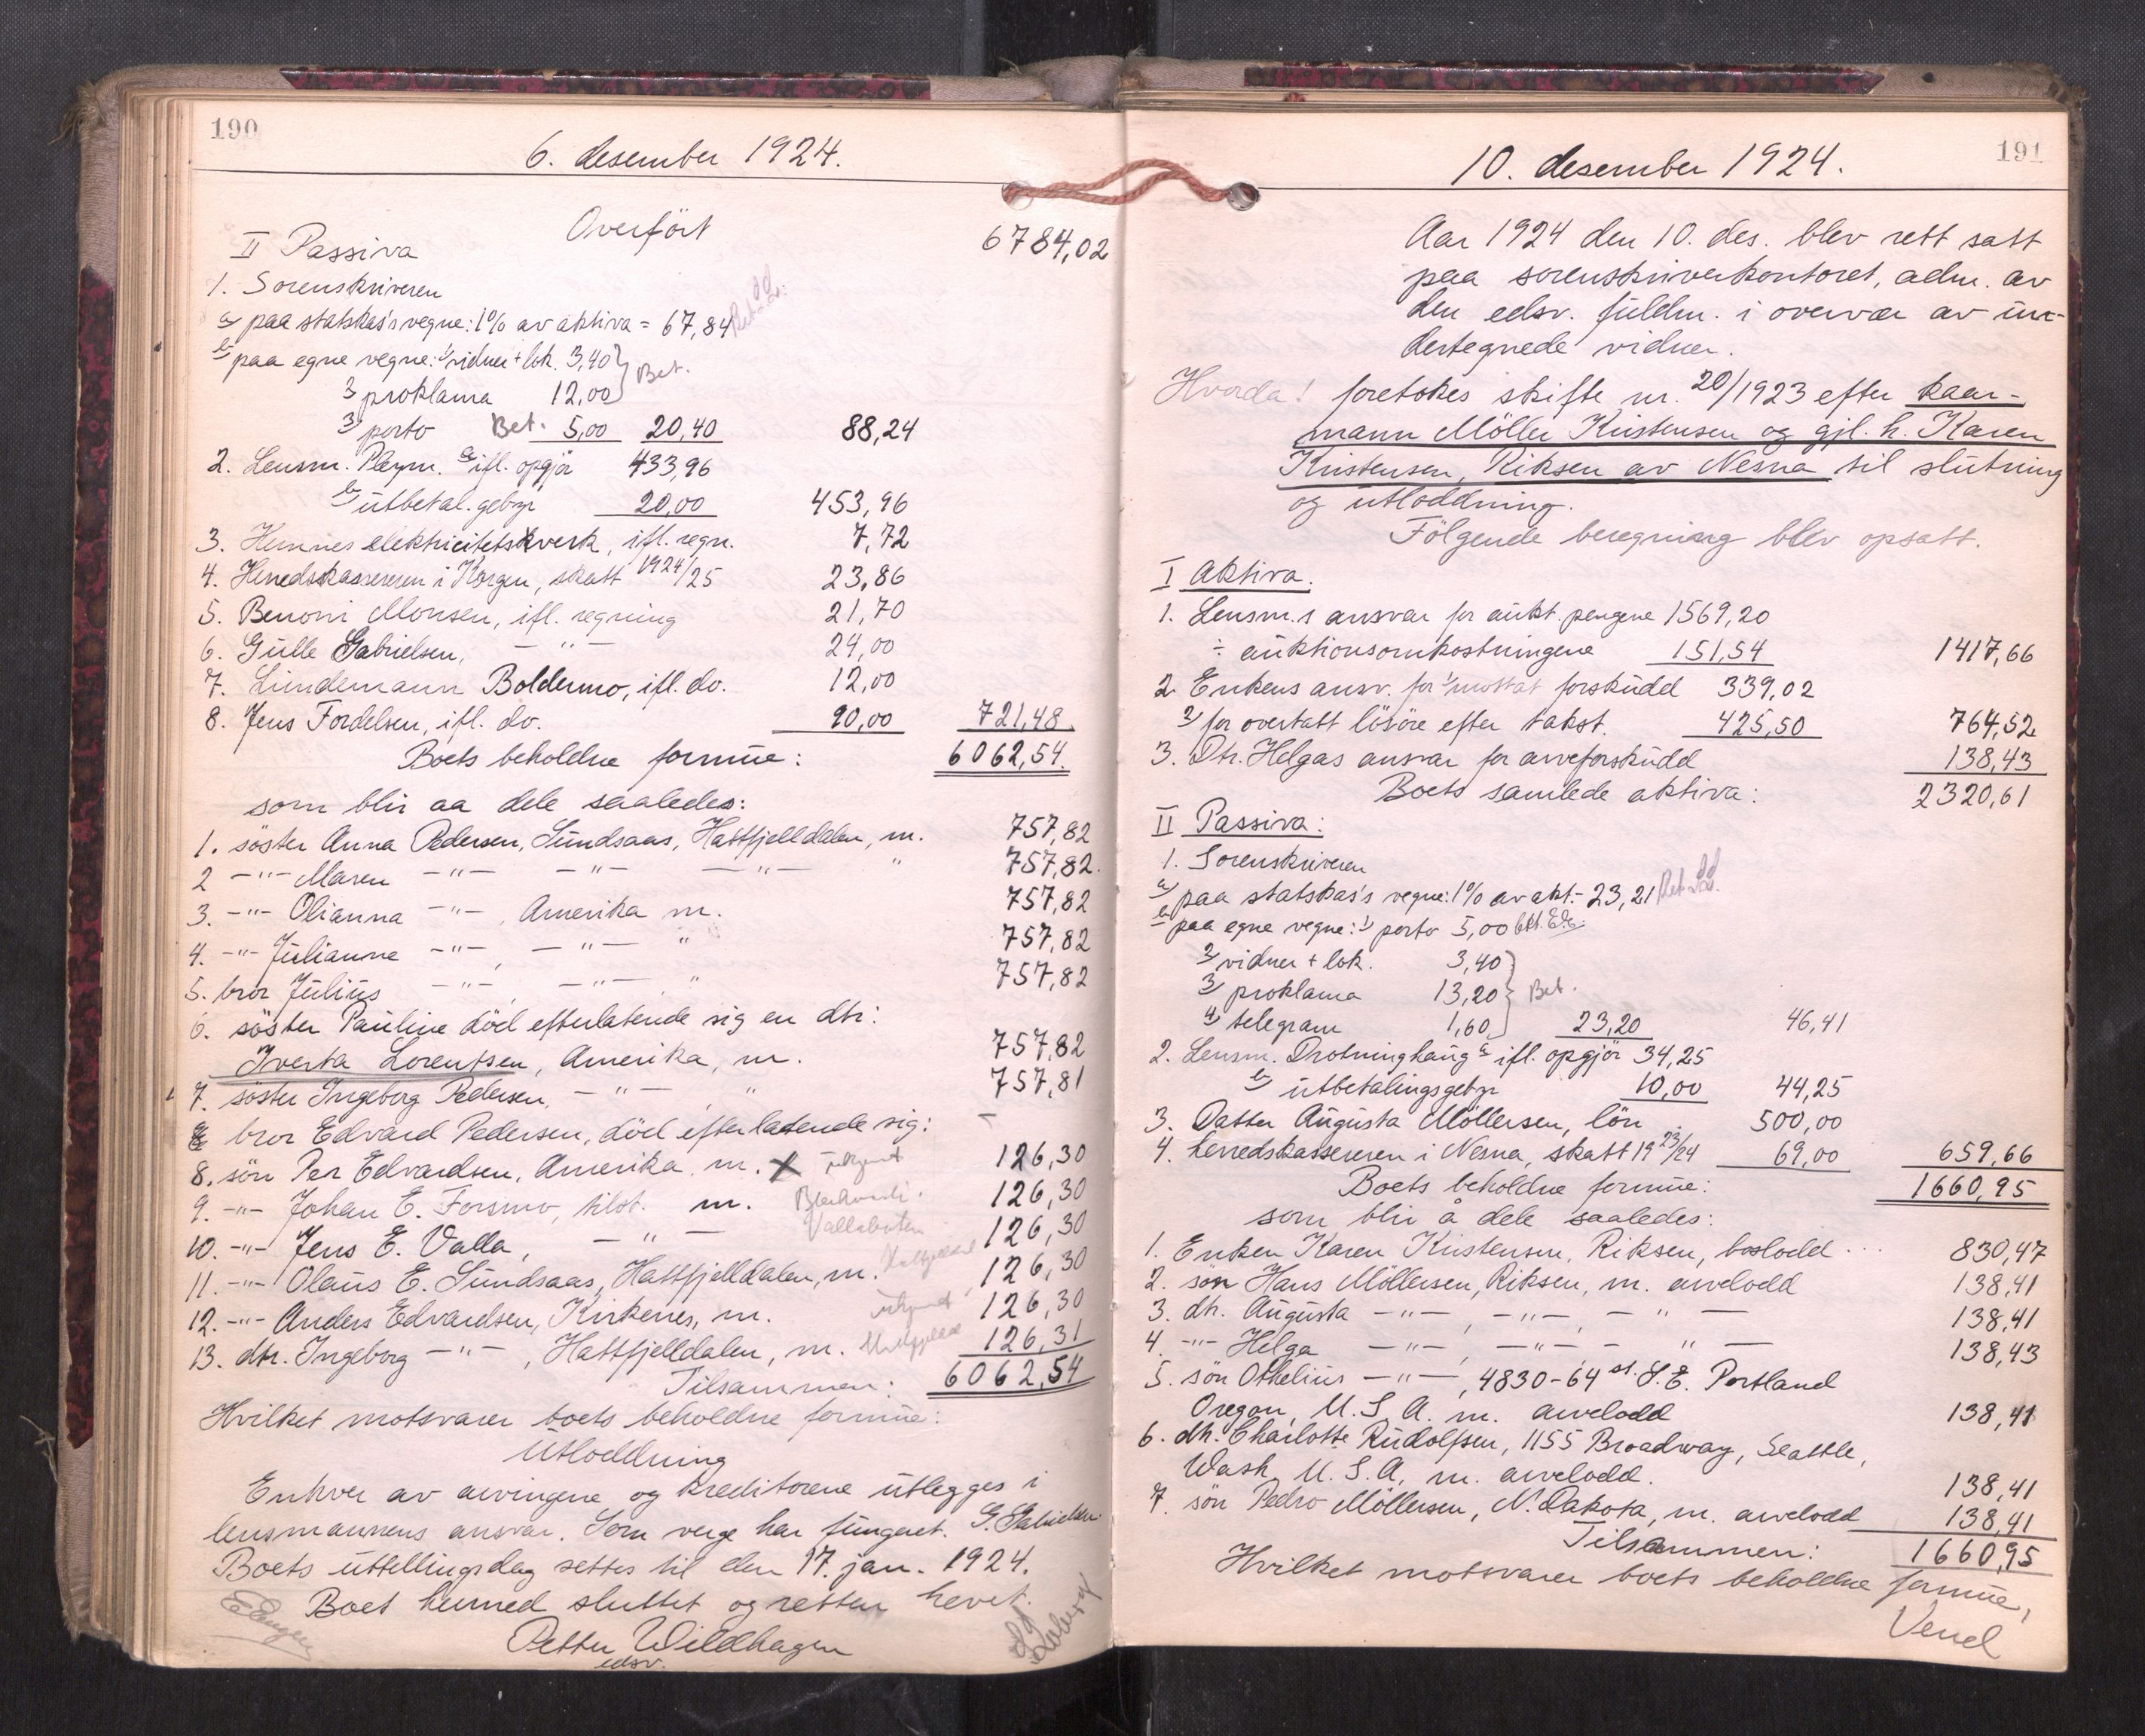 190
6. desember 1924.
Overført 6784,02
II Passiva
1. Sorenskriveren
a/ paa statskas's vegne: 1% av aktiva = 67,84
b/ paa egne vegne: 1/ vidner + lok. 3,40 Bet.
2/ proklama 12,00
3/ porto Bet. 5,00 20,40 88,24
2. Lensm. Pleym. a/ ifl. opgjør 433,96
b/ utbetal.gebyr 20,00 453,96
3. Hemnes elektricitetsverk, ifl. regn. 7,72
4. Herredskassereren i Korgen, skatt 1924/25 23,86
5. Benoni Monsen, ifl. regning 21,70
6. Gulle Gabrielsen, — " — 24,00
7. Lundemann Boldermo, ifl. do. 12,00
8. Jens Fordelsen, ifl. do. 90,00 721,48
Boets beholdne formue: 6062,54.
som blir aa dele saaledes:
1. søster Anna Pedersen, Sundsaas, Hattfjelldalen, m. 757,82
2 —"— Maren —"— —"— —"— " 757,82.
3. —"— Olianna —"—, Amerika m. 757,82
4. —"— Julianne —"—, —"— " 757,82
5. bror Julius —"—, —"—, " 757,82
6. søster Pauline død efterlatende sig en dtr:
Iverta Lorentsen, Amerika, m. 757,82
7. søster Ingeborg Pedersen, —"—, " 757,81
bror Edvard Pedersen, død efterlatende sig: —
8. søn Per Edvardsen, Amerika m. X ukjent 126,30
9. —"— Johan E. Forsmo, tilst. m. 126,30
10. —"— Jens E. Valla, —"— Vallabotn 126,30
11. —"— Olaus E. Sundsaas, Hattfjelldalen, m. 126,30
12. —"— Anders Edvardsen, Kirkenes, m. ukjent 126,30
13. dtr. Ingeborg —"—, Hattfjelldalen, m. 126,31
Tilsammen: 6062,54
Hvilket motsvarer boets beholdne formue:
Utloddning
Enhver av arvingene og kreditorene utlegges i
lensmannens ansvar. Som verge har fungeret. G. Gabrielsen
Boets uttellingsdag settes til den 17. jan. 1924.
Boet hermed sluttet og retten hevet.
Petter Wildhagen
edsv.
191
10. desember 1924.
Aar 1924 den 10. des. blev rett satt
paa sorenskriverkontoret, adm. av
den edsv. fuldm. i overvær av un-
dertegnede vidner.
Hvorda! foretokes skifte nr. 20/1923 efter kaar-
mann Möller Kristensen og gjl. h. Karen
Kristensen, Riksen av Nesna til slutning
og utloddning.
Følgende beregning blev opsatt.
I Aktiva.
1. Lensm.s ansvar for aukt. pengene 1569,20
÷ auktionsomkostningene 151,54 1417,66
2. Enkens ansv. for 1/ mottat forskudd 339,02
2/ for overtatt løsøre efter takst. 425,50 764,52
3. Dtr. Helgas ansvar for arveforskudd 138,43
Boets samlede aktiva: 2320,61
II Passiva:
1. Sorenskriveren
a/ paa statskas's vegne: 1% av akt.- 23,21
b/ paa egne vegne: 1/ porto 5,00
2/ vidner + lok. 3,40
3/ proklama 13,20 Bet.
4/ telegram 1,60 23,20 46,41
2. Lensm. Drotninghaug a/ ifl. opgjør 34,25
b/ utbetalingsgebyr 10,00 44,25
3. Datter Augusta Möllersen, løn 500,00
4. herredskassereren i Nesna, skatt 1923/24 69,00 659,66
Boets beholdne formue: 1660,95
som blir å dele saaledes:
1. Enken Karen Kristensen, Riksen, boslodd ... 830,47
2. søn Hans Möllersen, Riksen, m. arvelodd 138,41
3. dtr. Augusta —"—, —"—, —"— 138,41
4 —"— Helga —"—, —"— —"— 138,43
5. søn Othelius —"—, 4830-64 st. S.E. Portland
Oregon, U.S.A. m. arvelodd 138,41
6. dtr. Charlotte Rudolfsen, 1155 Broadway, Seattle,
Wash. U.S.A. m. arvelodd. 138,41
7. søn Pedro Möllersen, N. Dakota, m. arvelodd 138,41
Tilsammen: 1660,95
Hvilket motsvarer boets beholdne formue,
Vend